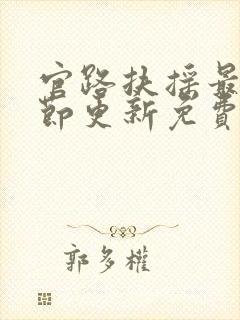 官路扶摇最
节更新免费
郭多權